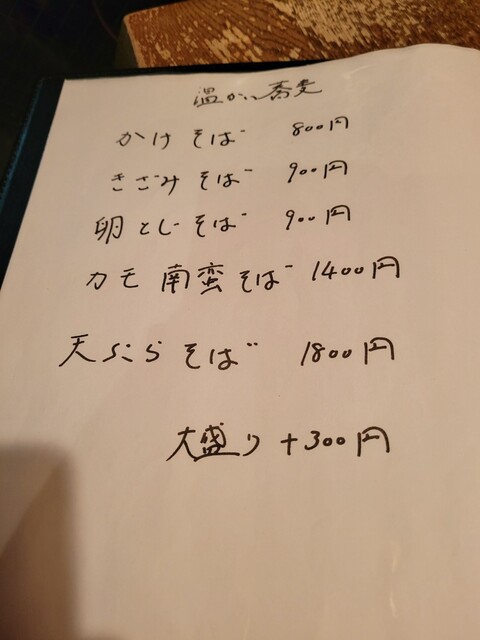 温かい蕎麦
かけそば 800円
きざみそば 900円
卵とじそば 900円
カモ南蛮そば 1400円
天ぷらそば 1800円
大盛り +300円